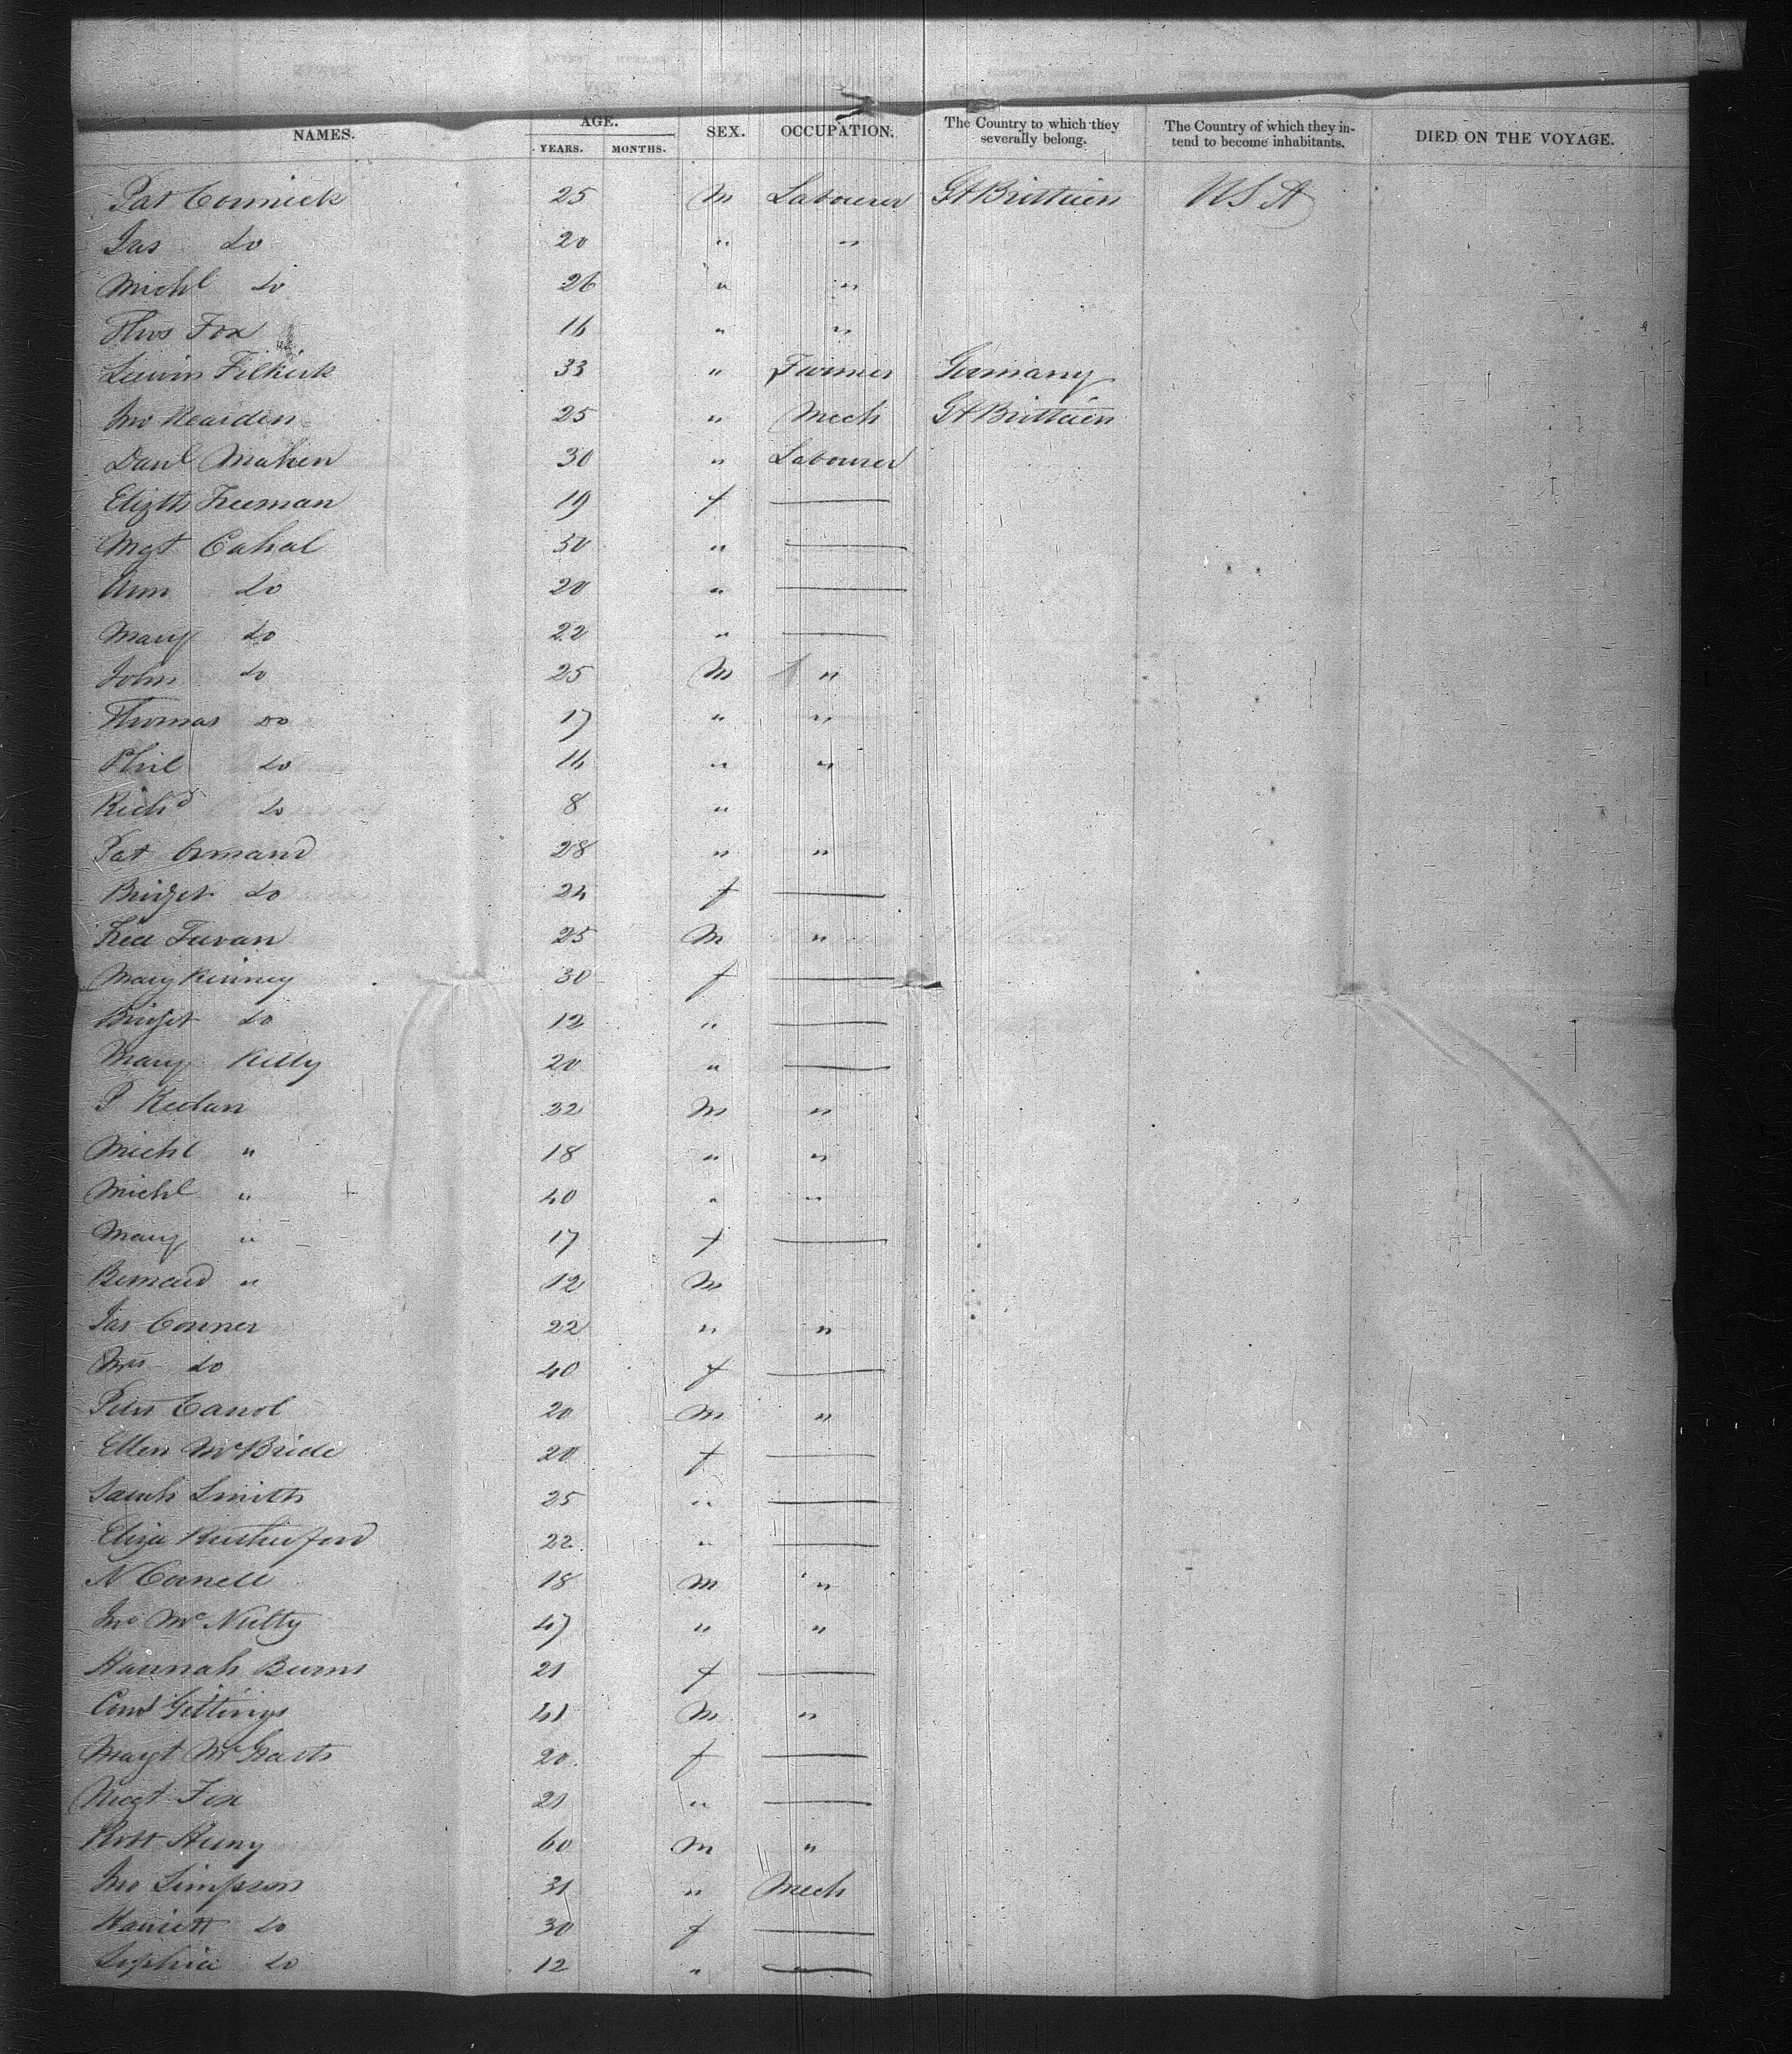 NAMES. AGE. YEARS. MONTHS. SEX. OCCUPATION. The Country to which they severally belong. The Country of which they intend to become inhabitants. DIED ON THE VOYAGE.
Pat Cormick 25 M Labourer Gt Brittain USA
Jas do 20 " "
Michl do 26 " "
Thos Fox 16 " "
33 " Farmer Germany
Jno Rearden 25 " Mech Gt Brittain
Danl Mahen 30 " Labourer
Elizth Freeman 19 f —
Mgt Cahal 30 " —
Ann do 20 " —
Mary do 22 " —
John do 25 M "
Thomas do 17 " "
Phil do 14 " "
Richd do 8 "
Pat Ormand 28 " "
Bridget do 24 f —
25 M "
Mary Kinney 30 f —
Bridget do 12 " —
Mary Kelly 20 " —
P Keelan 32 M "
Michl " 18 " "
Michl " 40 " "
Mary " 17 f —
Bernard " 12 M
Jas Conner 22 " "
Mrs do 40 f —
Peter Carrol 20 M "
Ellen McBride 20 f —
Sarah Smith 25 " —
Eliza Rutherford 22 " —
N 18 M "
Jno McNulty 47 " "
Hannah Burns 21 f —
Gittings 41 M "
Margt 20 f —
Magt Fox 21 " —
Robt 60 M "
Jno Simpson 31 " Mech
Harriett do 30 f —
Sophia do 12 " —